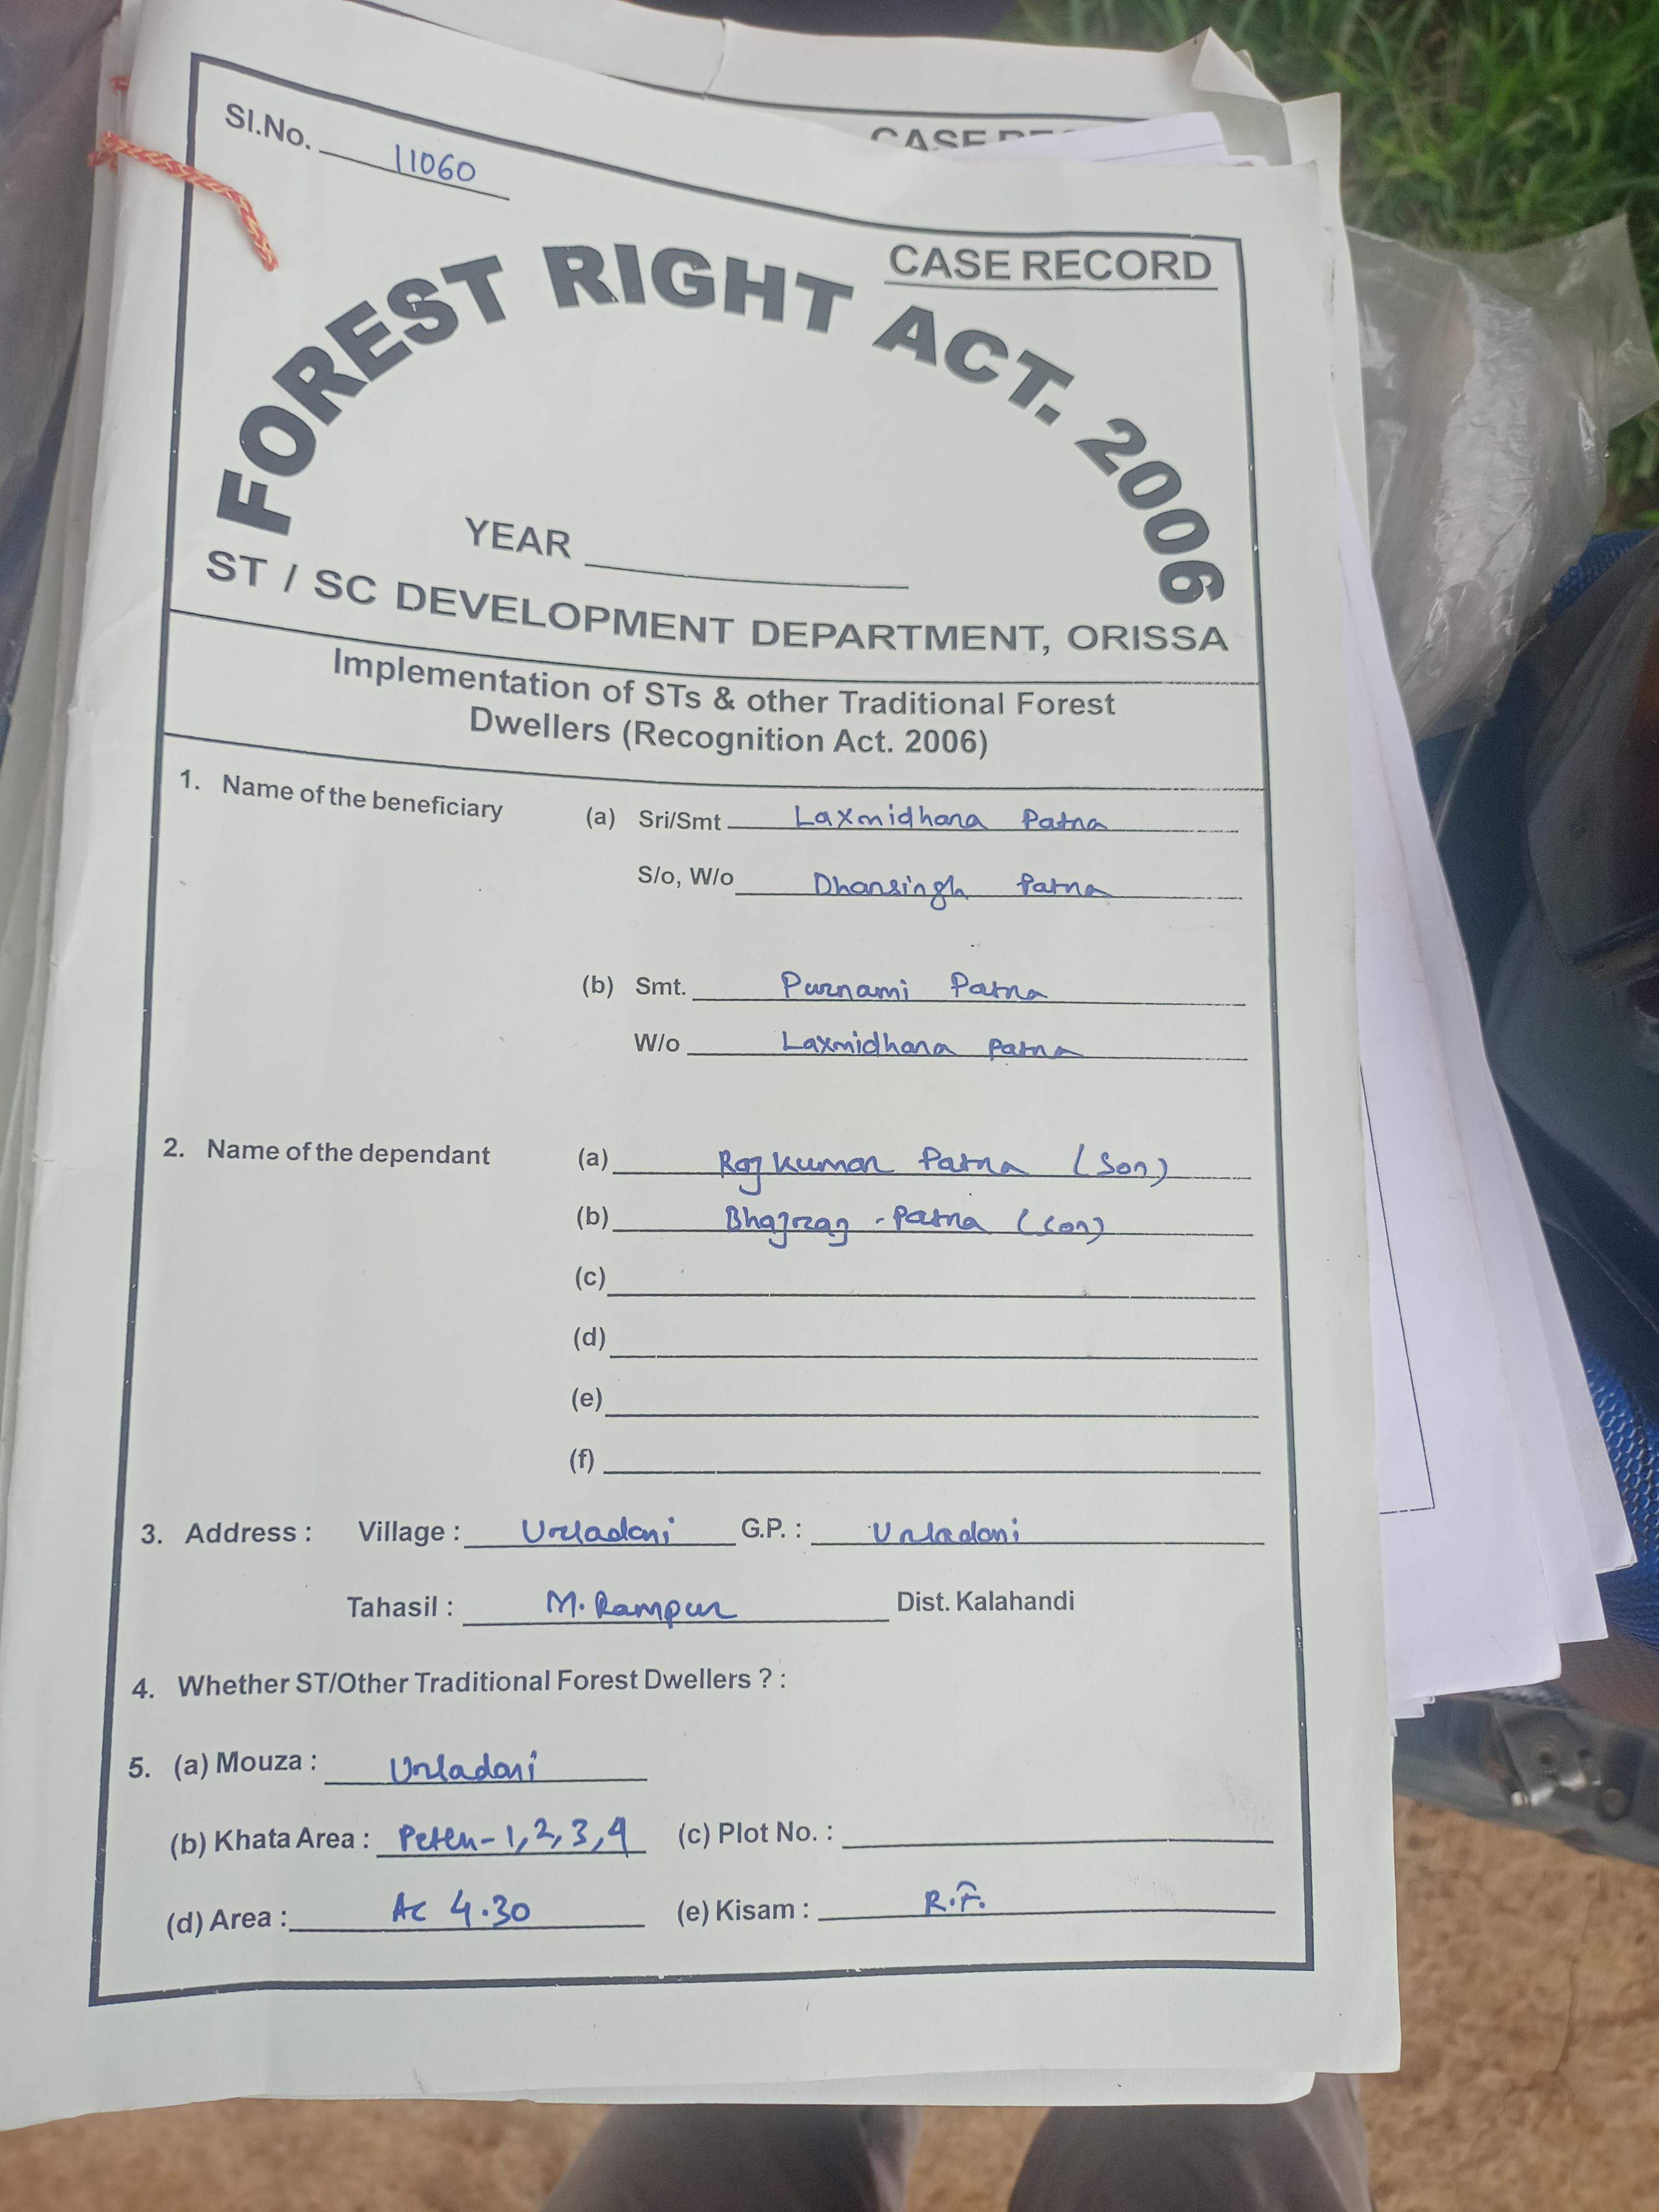 CASE RE
Sl.No. 11060
CASE RECORD
FOREST RIGHT ACT. 2006
YEAR
ST / SC DEVELOPMENT DEPARTMENT, ORISSA
Implementation of STs & other Traditional Forest
Dwellers (Recognition Act. 2006)
1. Name of the beneficiary (a) Sri/Smt Laxmidhara Patra
S/o, W/o Dhansingh Patra
(b) Smt. Purnami Patra
W/o Laxmidhara Patra
2. Name of the dependant (a) Rajkumar Patra (Son)
(b) Patra (Son)
(c)
(d)
(e)
(f)
3. Address : Village : Urladani G.P. : Urladani
Tahasil : M. Rampur Dist. Kalahandi
4. Whether ST/Other Traditional Forest Dwellers ? :
5. (a) Mouza : Urladani
(b) Khata Area : - 1, 2, 3, 4 (c) Plot No. :
(d) Area : Ac 4.30 (e) Kisam : R.F.